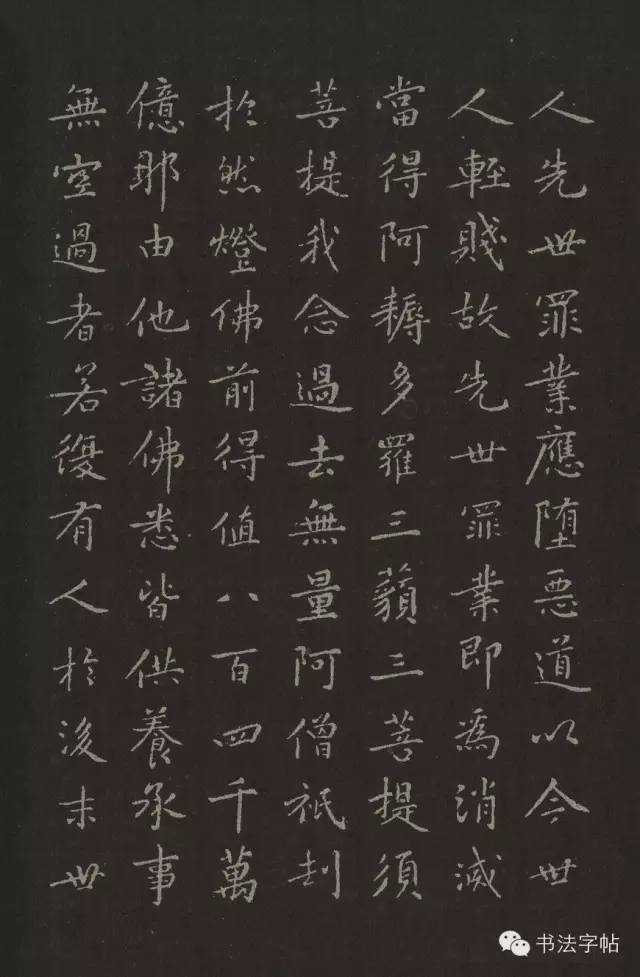 人先世罪業應堕惡道以今世
人輕賤故先世罪業即為消滅
當得阿耨多羅三藐三菩提須
菩提我念過去無量阿僧祇刧
於然燈佛前得值八百四千萬
億那由他諸佛悉皆供養承事
無空過者若復有人於後末世
书法字帖